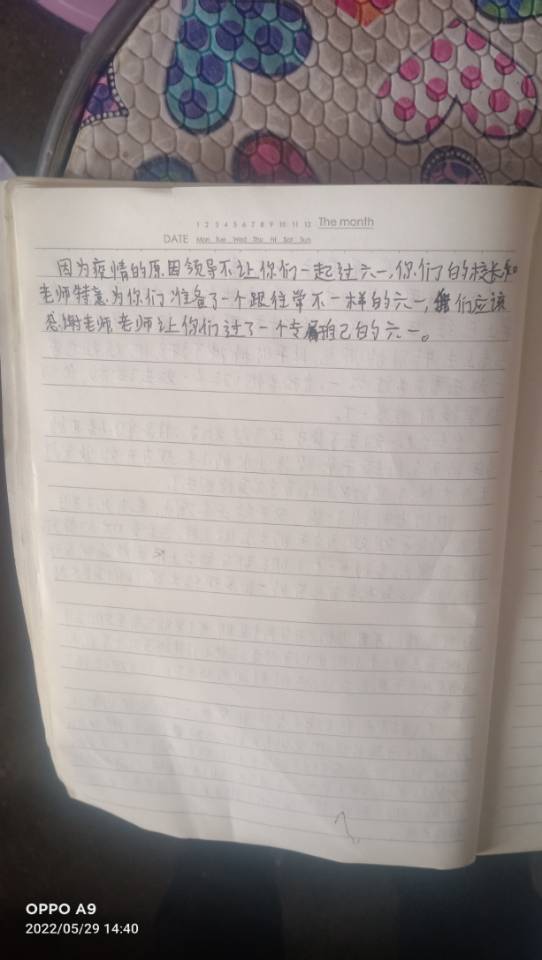 1 2 3 4 5 6 7 8 9 10 11 12 The month
DATE Mon Tue Wed Thu Fri Sat Sun
因为疫情的原因领导不让你们一起过六一,你们了的校长和
老师特意为你们准备了一个跟往常不一样的六一,我们应该
感谢老师老师让你们过了一个专属自己的六一。
OPPO A9
2022/05/29 14:40